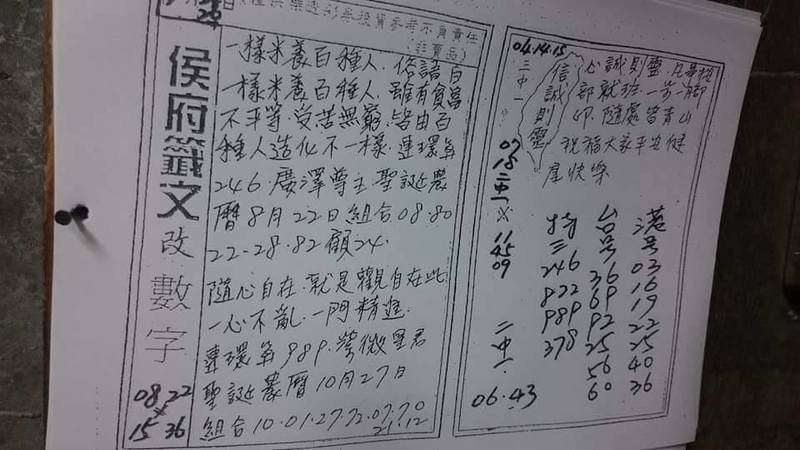 參考不負責任
(非賣品)
侯府籤文
改數字
08 22
×
15 36
一樣米養百種人.俗語曰
一樣米養百種人.雖有貧富
不平等.受苦無窮.皆由百
種人造化不一樣.連環
246.廣澤尊王聖誕農
曆8月22日組合08.80
22.28.82顧24.
隨心自在.就是觀自在此
一心不亂.一門精進.
連環 989.紫微星君
聖誕農曆10月27日
組合10.01.27.72.07.70
21.12
04.14.15
三中一
信誠則靈
心誠則靈.凡事按
部就班.一步一腳
印.隨處皆青山
祝福大家平安健
康快樂
07
15
二中一
×
11
45
09
二中一
06.43
三
246
822
989
378
台号
36
69
92
25
56
60
港号
03
16
19
22
25
40
36